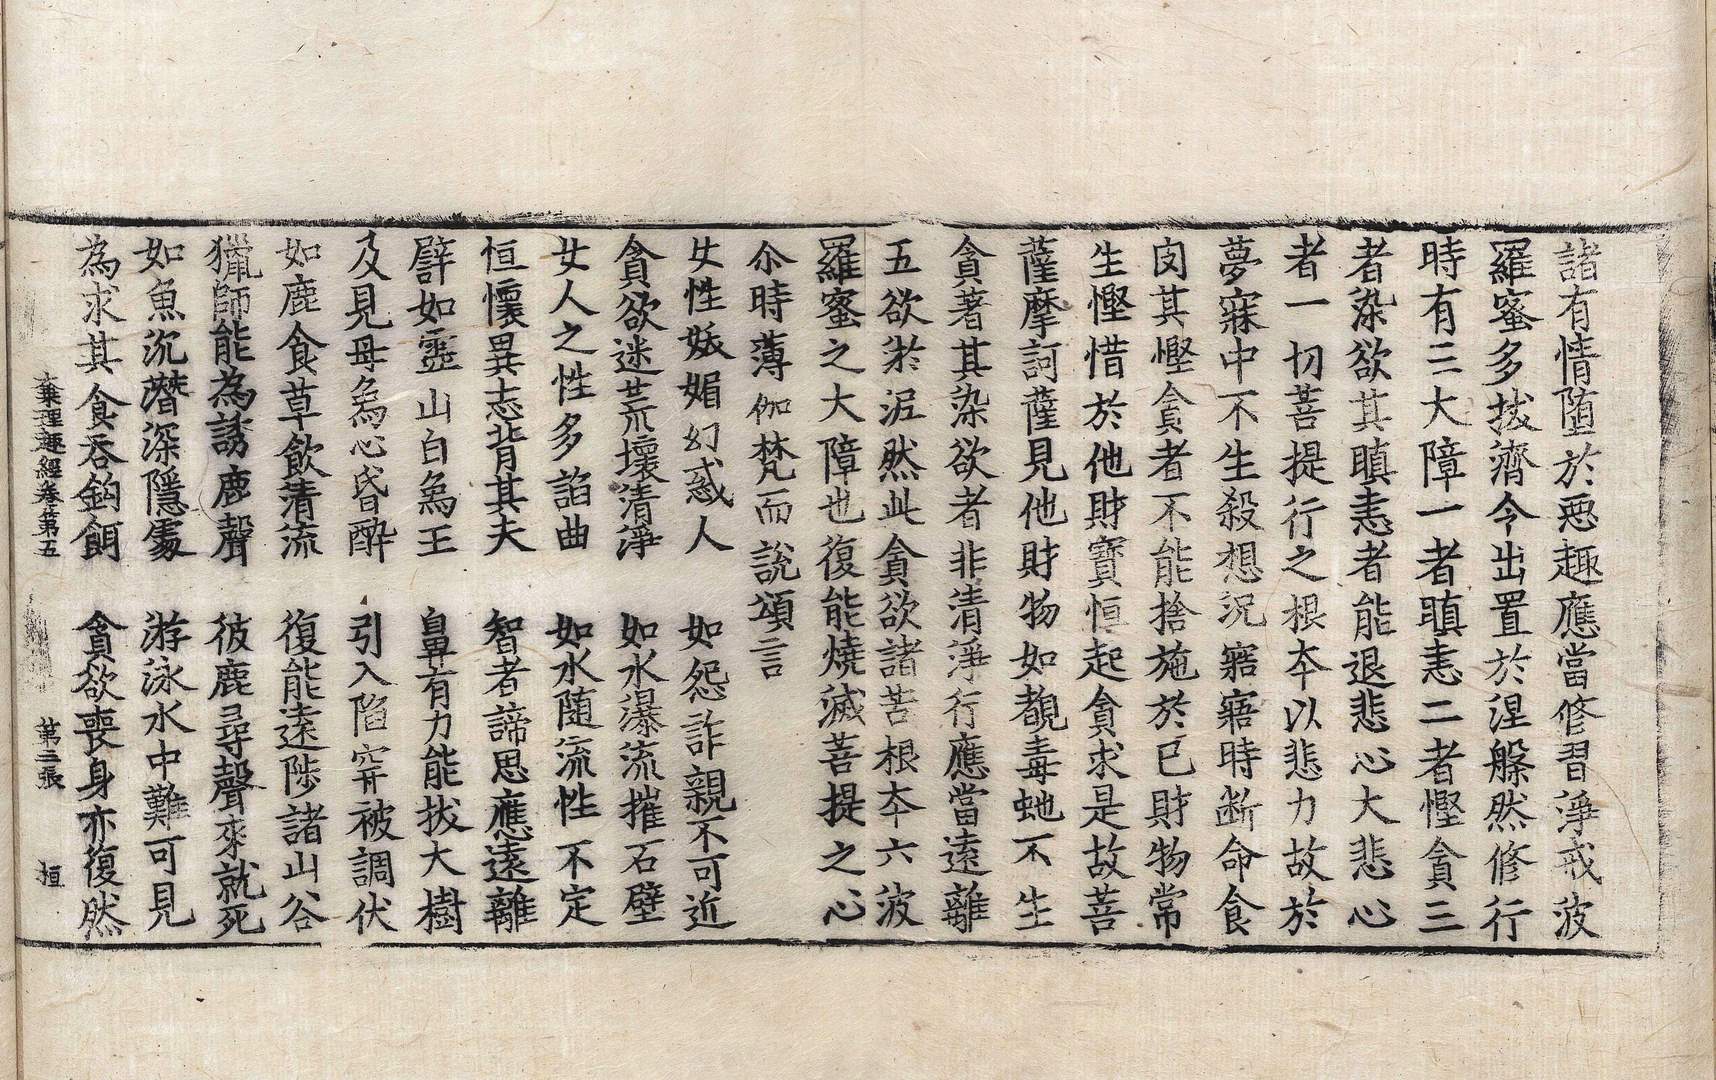 諸有情墮於惡趣應當修習淨戒波
羅蜜多拔濟令出置於涅槃然修行
時有三大障一者瞋恚二者慳貪三
者染欲其瞋恚者能退悲心大悲心
者一切菩提行之根夲以悲力故於
夢寐中不生殺想況寤寤時断命食
肉其慳貪者不能捨施於已財物常
生慳惜於他財寶恒起貪求是故菩
薩摩訶薩見他財物如覩毒虵不生
貪著其染欲者非清淨行應當遠離
五欲淤泥然此貪欲諸苦根夲六波
羅蜜之大障也復能燒滅菩提之心
尒時薄伽梵而說頌言
女性妖媚幻惑人　如怨詐親不可近
貪欲迷荒壞清淨　如水瀑流摧石壁
女人之性多諂曲　如水随流性不定
恒懷異志背其夫　智者諦思應遠離
譬如雪山白烏王　鼻有力能拔大樹
及見母烏心昏醉　引入陷穽被調伏
如鹿食草飲清流　復能遠陟諸山谷
獵師能為誘鹿聲　彼鹿尋聲來就死
如魚沉潜深隱處　游泳水中難可見
為求其食吞鈎餌　貪欲喪身亦復然
大乗理趣經卷第五　第三張　桓